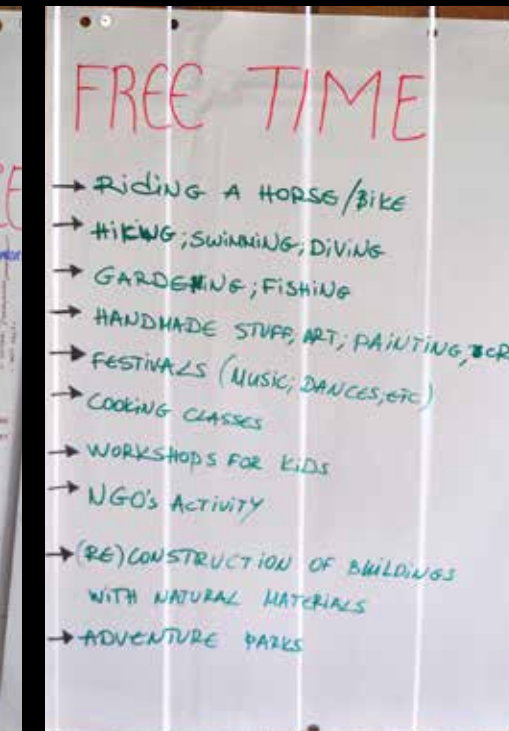 FREE TIME
→ RIDING A HORSE/BIKE
→ HIKING; SWIMMING; DIVING
→ GARDENING; FISHING
→ HANDMADE STUFF, ART; PAINTING,
→ FESTIVALS (MUSIC; DANCES; ETC)
→ COOKING CLASSES
→ WORKSHOPS FOR KIDS
→ NGO's ACTIVITY
→ (RE)CONSTRUCTION OF BUILDINGS
WITH NATURAL MATERIALS
→ ADVENTURE PARKS